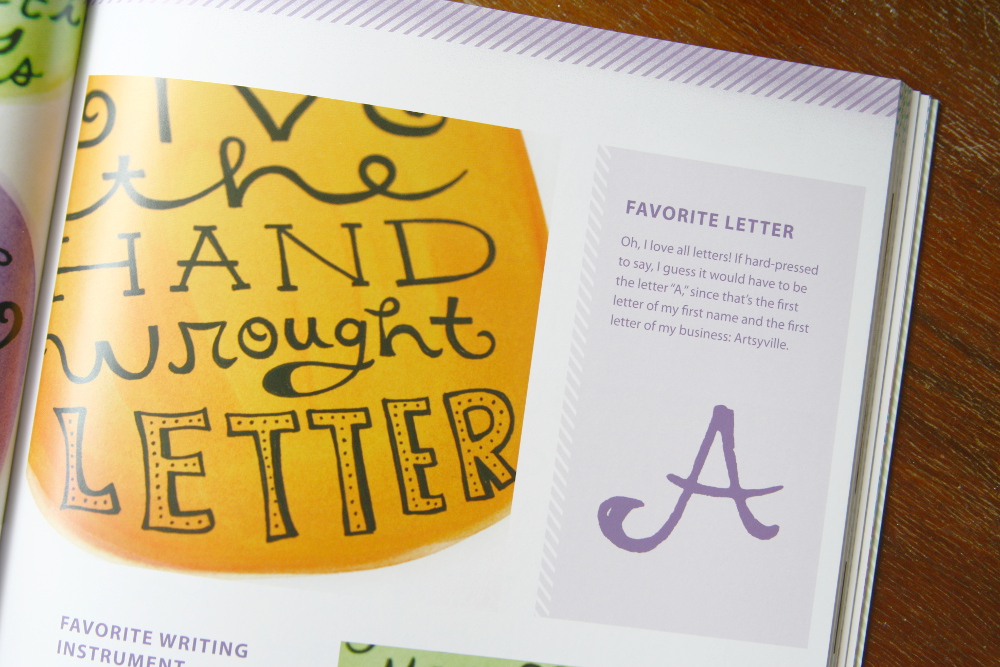 the
HAND
wrought
LETTER
FAVORITE LETTER
Oh, I love all letters! If hard-pressed
to say, I guess it would have to be
the letter "A," since that's the first
letter of my first name and the first
letter of my business: Artsyville.
A
FAVORITE WRITING
INSTRUMENT